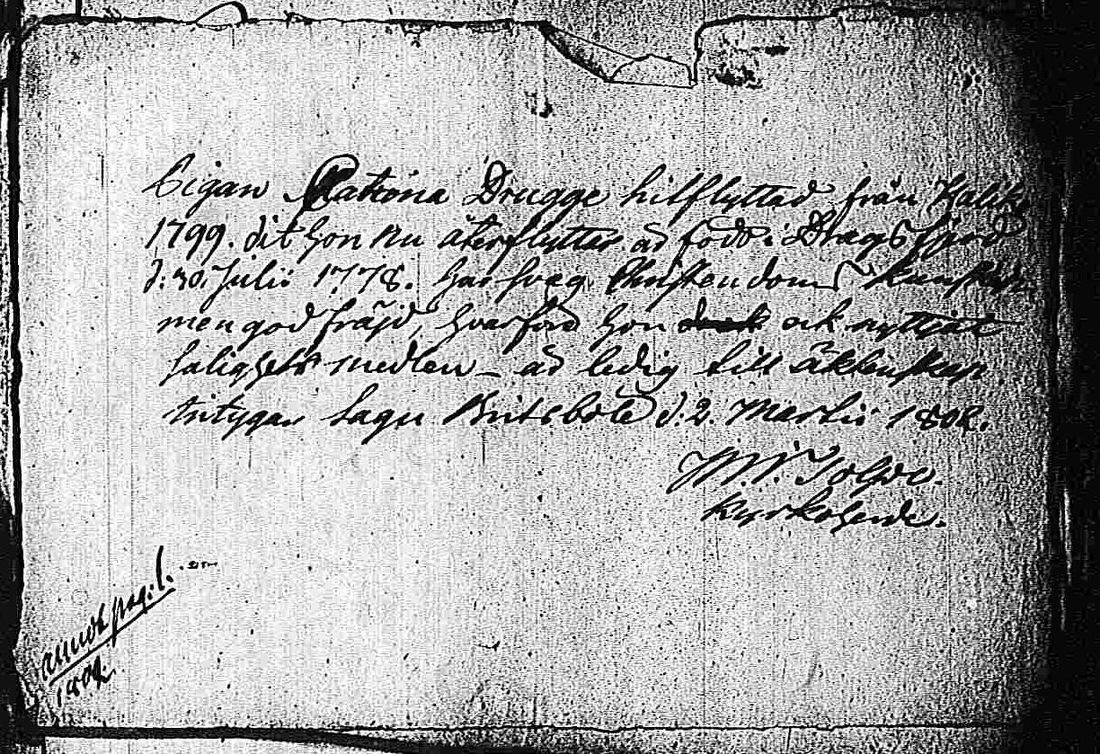 Pigan Catrina Drugge hitflyttad från Halik
1799. dit hon nu återflyttar är född i Dragsfjerd
d. 30. Julii 1778. har svag Christendoms kunskap
men god fräjd, hvarföre hon ock nyttjat
salighets medlen – är ledig till äktenskap
intygar Sagu d. 2. Martii 1802.
Kyrkoherde.
1802.